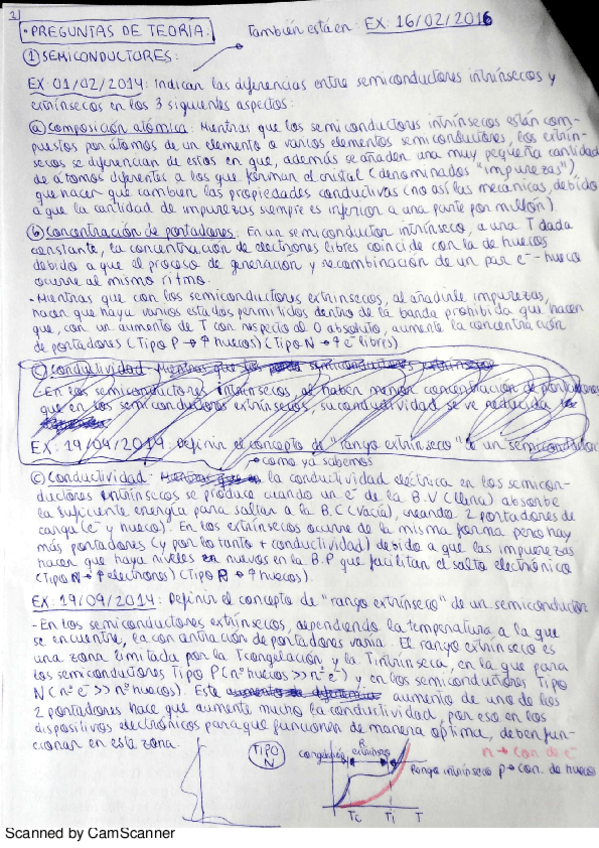 2)
· PREGUNTAS DE TEORÍA.
También está en: EX: 16/02/2016
① SEMICONDUCTORES:
EX 01/02/2014: Indican las diferencias entre semiconductores intrínsecos y
extrínsecos en los 3 siguientes aspectos:
ⓐ Composición atómica: Mientras que los semiconductores intrínsecos están com-
puestos por átomos de un elemento o varios elementos semiconductores, los extrín-
secos se diferencian de estos en que, además se añaden una muy pequeña cantidad
de átomos diferentes a los que forman el cristal (denominados "impurezas")
que hacen que cambien las propiedades conductivas (no así las mecánicas, debido
a que la cantidad de impurezas siempre es inferior a una parte por millón).
ⓑ Concentración de portadores: En un semiconductor intrínseco, a una T dada
constante, la concentración de electrones libres coincide con la de huecos
debido a que el proceso de generación y recombinación de un par e⁻-hueco
ocurre al mismo ritmo.
- Mientras que con los semiconductores extrínsecos, al añadirle impurezas,
hacen que haya varios estados permitidos dentro de la banda prohibida que hacen
que, con un aumento de T con respecto al 0 absoluto, aumente la concentración
de portadores (Tipo P → ↑ huecos) (Tipo N → ↑ e⁻ libres).
ⓒ Conductividad: Mientras que los semiconductores extrínsecos
- En los semiconductores intrínsecos, al haber menor concentración de portadores
que en los semiconductores extrínsecos, su conductividad se ve reducida
EX: 19/09/2014: Definir el concepto de "rango extrínseco" de un semiconductor
como ya sabemos
ⓒ Conductividad: la conductividad eléctrica en los semicon-
ductores intrínsecos se produce cuando un e⁻ de la B.V (llena) absorbe
la suficiente energía para saltar a la B.C (vacía), creando 2 portadores de
carga (e⁻ y hueco). En los extrínsecos ocurre de la misma forma pero hay
más portadores (y por lo tanto + conductividad) debido a que las impurezas
hacen que haya niveles nuevos en la B.P que facilitan el salto electrónico
(Tipo N → ↑ electrones) (Tipo P → ↑ huecos).
EX: 19/09/2014: Definir el concepto de "rango extrínseco" de un semiconductor
- En los semiconductores extrínsecos, dependiendo la temperatura a la que
se encuentre, la concentración de portadores varía. El rango extrínseco es
una zona limitada por la Tcongelación y la Tintrínseca, en la que para
los semiconductores Tipo P (nº huecos >> nº e⁻) y en los semiconductores Tipo
N (nº e⁻ >> nº huecos). Este aumento de uno de los
2 portadores hace que aumente mucho la conductividad, por eso en los
dispositivos electrónicos para que funcionen de manera óptima, deben fun-
cionar en esta zona.
TIPO
N
R.
extrínseco
n → con. de e⁻
Rango intrínseco p → con. de huecos
Tc Ti T
Scanned by CamScanner